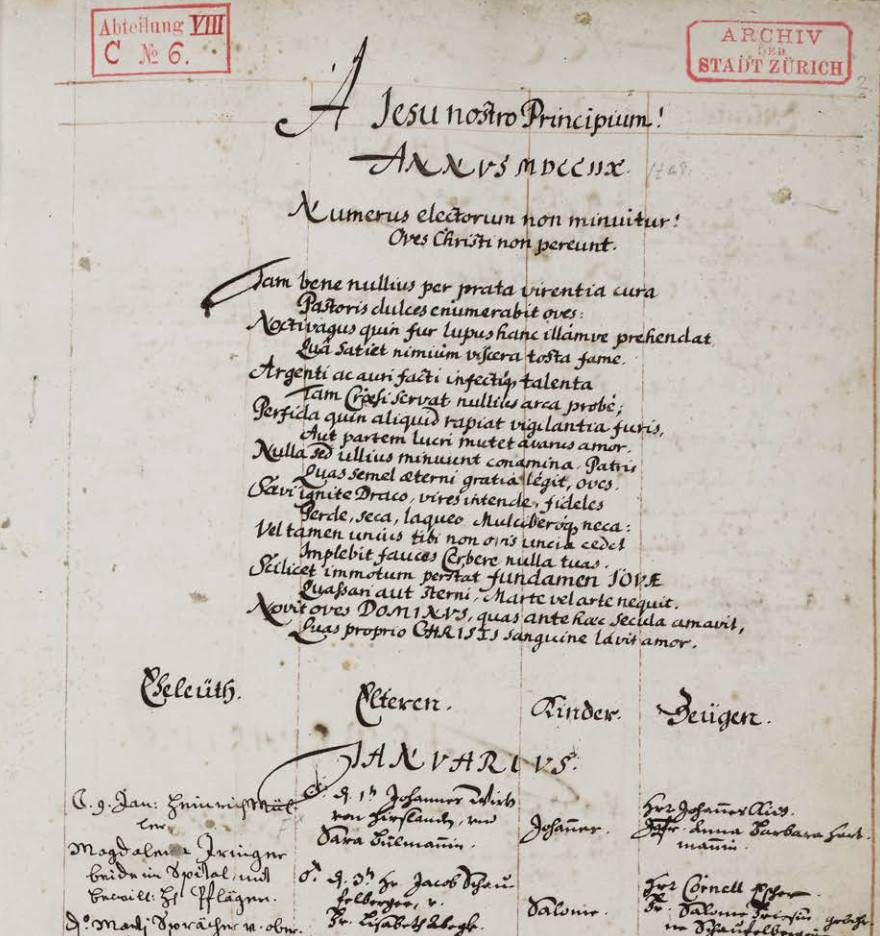 Abteilung VIII
C № 6.
ARCHIV
DER
STADT ZÜRICH
2
A Jesu nostro Principium!
ANNVS MDCCIIX.
Numerus electorum non minuitur!
Oves Christi non pereunt.
Tam bene nullius per prata virentia cura
Pastoris dulces enumerabit oves:
Noctivagus quin fur lupus hanc illamve prehendat
Quâ satiet nimiùm viscera tosta fame.
Argenti ac auri facti infectiq talenta
Tam Croesi servat nullius arca probè;
Perfida quin aliquid rapiat vigilantia furis,
Aut partem lucri mutet avarus amor.
Nulla sed illius minuunt conamina Patris
Quas semel æterni gratia legit, oves.
Sævi ignite Draco, vires intende, fideles
Perde, seca, laqueo Mulciberoq neca:
Vel tamen unius tibi non ovis uncia cedet
Implebit fauces Cerbere nulla tuas.
Scilicet immotum perstat fundamen IOVÆ
Quassari aut sterni, Marte vel arte nequit.
Novit oves DOMINVS, quas ante hac secula amavit,
Quas proprio CHRISTI sanguine lavit amor.
Eheleüth.
Elteren.
Kinder.
Zeügen.
IANVARIVS.
C. 9. Jan: Heinrich Mül-
ler,
Magdalena
beide im Spital, mit
bewill: Pflägern.
d. 1 Johannes Wirth
von Hirslanden, und
Sara
Johannes.
Hr Johannes
Anna Barbara Hart-
mannin.
d. 3 Hr. Jacob Schau-
felberger, v.
Fr. Lisabeth
Salome.
Hr Cornell Escher
Fr. Salome